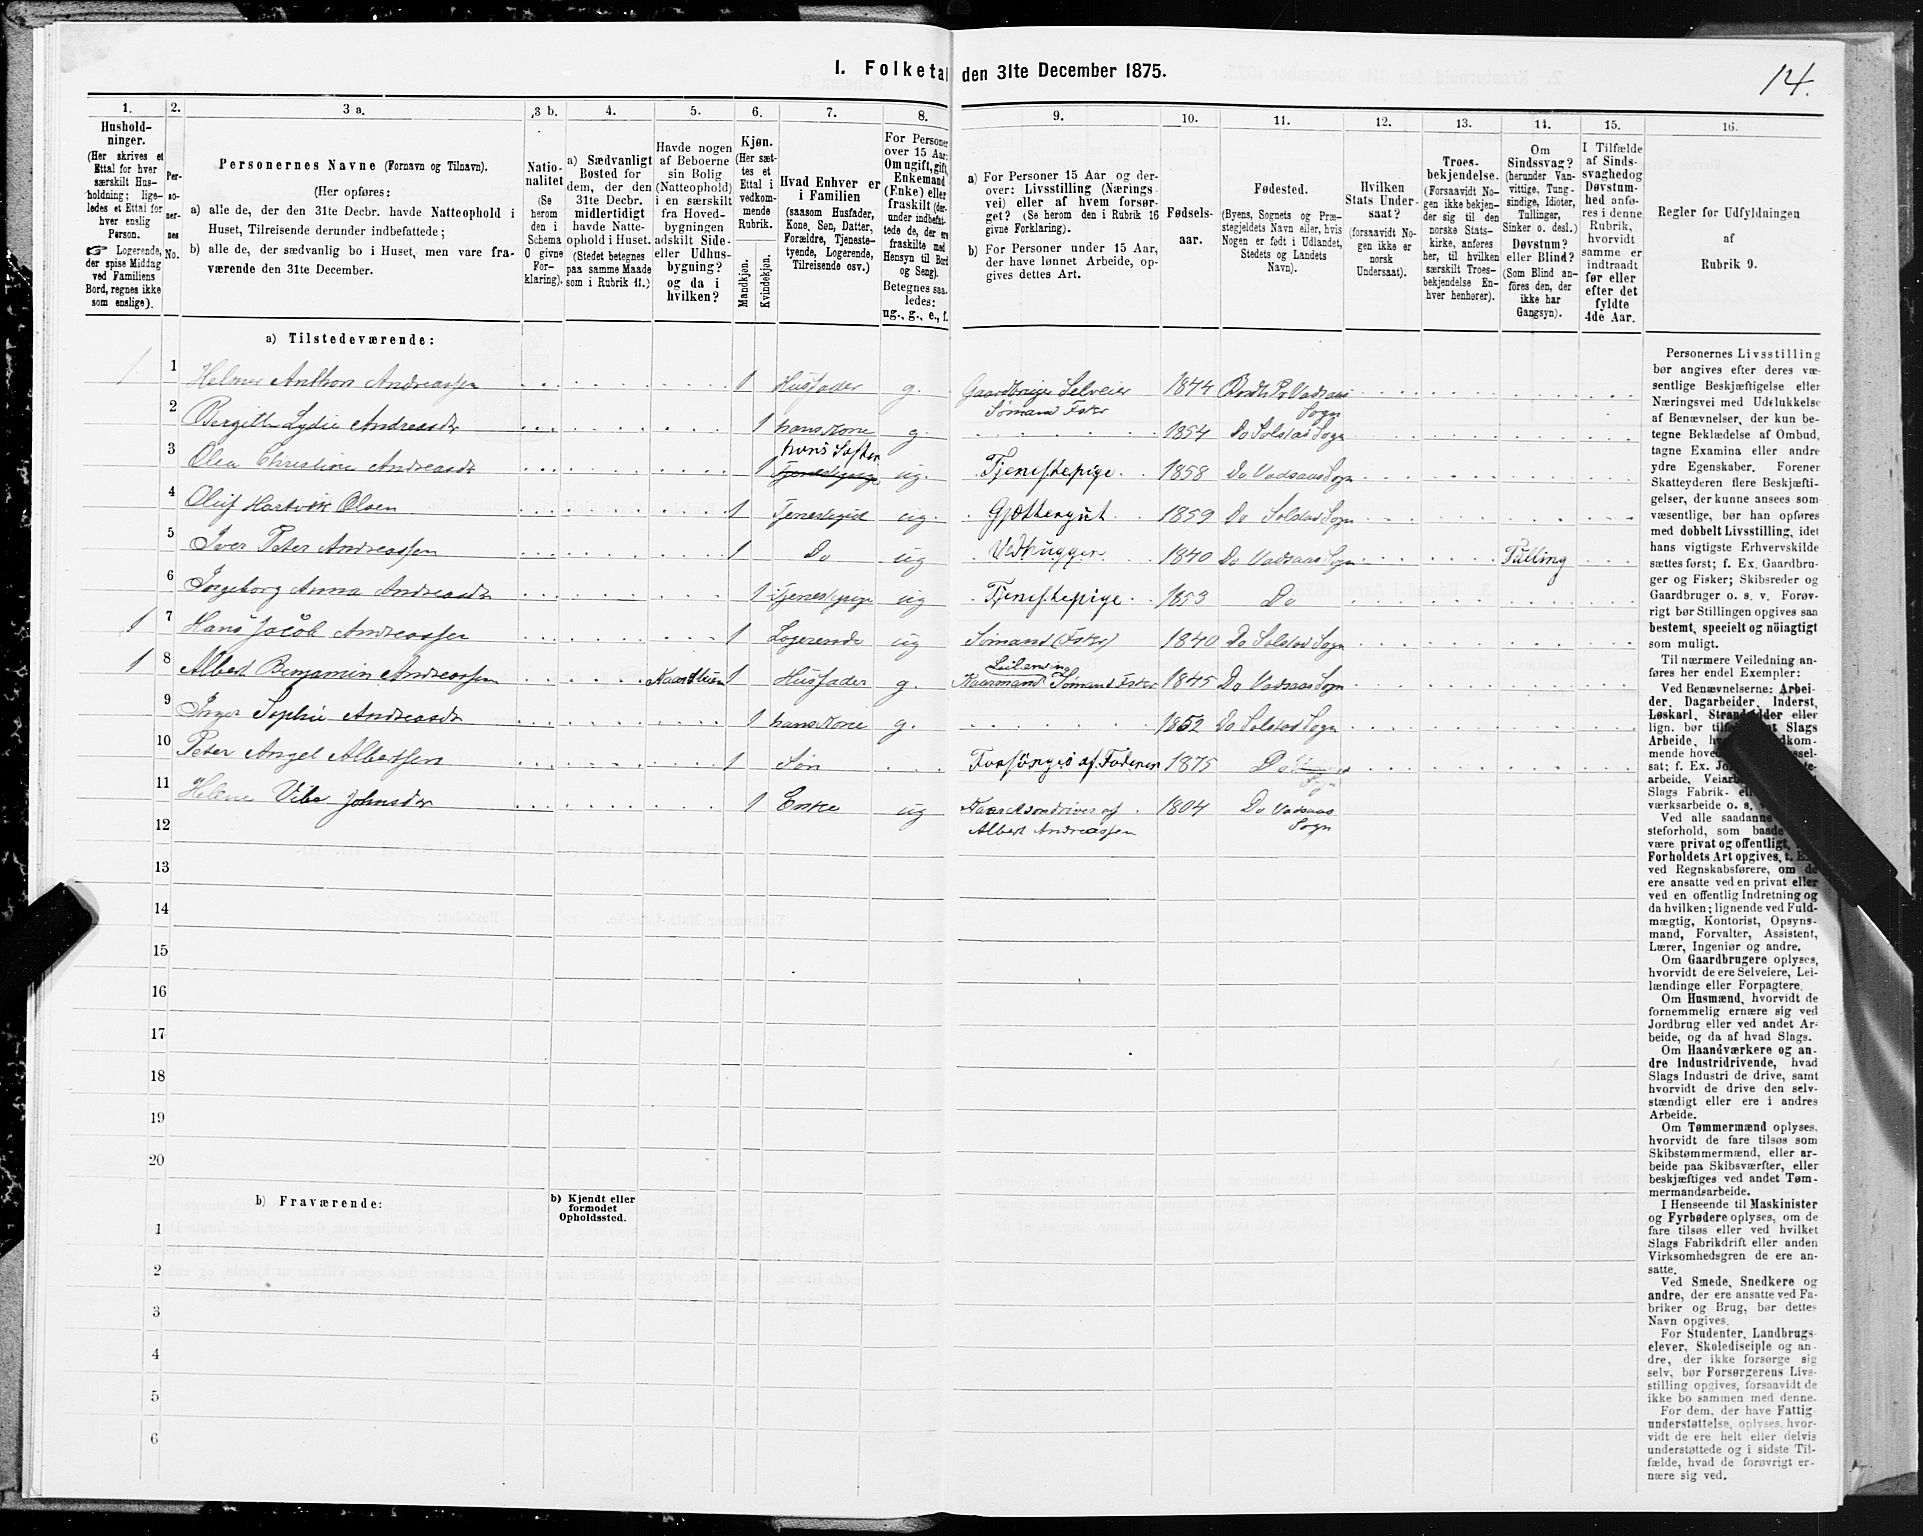 I. Folketal den 31te December 1875.
14.
1.
2.
3 a.
3 b.
4.
5.
6.
7.
8.
9.
10.
11.
12.
13.
14.
15.
16.
Hushold-
ninger.
(Her skrives et
Ettal for hver
særskilt Hus-
holdning; lige-
ledes et Ettal for
hver enslig
Person.
☞ Logerende,
der spise Middag
ved Familiens
Bord, regnes ikke
som enslige).
Per-
so-
ner-
nes
No.
Personernes Navne (Fornavn og Tilnavn).
(Her opføres:
a) alle de, der den 31te Decbr. havde Natteophold i
Huset, Tilreisende derunder indbefattede;
b) alle de, der sædvanlig bo i Huset, men vare fra-
værende den 31te December.
Natio-
nalitet
(Se
herom
den i
Schema
O givne
For-
klaring).
a) Sædvanligt
Bosted for
dem, der den
31te Decbr.
midlertidigt
havde Natte-
ophold i Huset.
(Stedet betegnes
paa samme Maade
som i Rubrik 11.)
Havde nogen
af Beboerne
sin Bolig
(Natteophold)
i en særskilt
fra Hoved-
bygningen
adskilt Side-
eller Udhus-
bygning?
og da i
hvilken?
Kjøn.
(Her sæt-
tes et
Ettal i
vedkom-
mende
Rubrik.
Mandkjøn.
Kvindekjøn.
Hvad Enhver er
i Familien
(saasom Husfader,
Kone, Søn, Datter,
Forældre, Tjeneste-
tyende, Logerende,
Tilreisende osv.)
For Personer
over 15 Aar:
Om ugift, gift,
Enkemand
(Enke) eller
fraskilt (der-
under indbefat-
tede de, der ere
fraskilte med
Hensyn til Bord
og Seng).
Betegnes saa-
ledes:
ug., g., e., f.
a) For Personer 15 Aar og der-
over: Livsstilling (Nærings-
vei) eller af hvem forsør-
get? (Se herom den i Rubrik 16
givne Forklaring).
b) For Personer under 15 Aar,
der have lønnet Arbeide, op-
gives dettes Art.
Fødsels-
aar.
Fødested.
(Byens, Sognets og Præ-
stegjeldets Navn eller, hvis
Nogen er født i Udlandet,
Stedets og Landets
Navn).
Hvilken
Stats Under-
saat?
(forsaavidt No-
gen ikke er
norsk
Undersaat).
Troes-
bekjendelse.
(Forsaavidt No-
gen ikke bekjen-
der sig til den
norske Stats-
kirke, anføres
her, til hvilken
særskilt Troes-
bekjendelse En-
hver henhører).
Om
Sindssvag?
(herunder Van-
vittige, Tung-
sindige, Idioter,
Tullinger,
Sinker o. desl.)
Døvstum?
eller Blind?
(Som Blind an-
føres den, der
ikke har
Gangsyn).
I Tilfælde
af Sinds-
svaghed og
Døvstum-
hed anfø-
res i denne
Rubrik,
hvorvidt
samme er
indtraadt
før eller
efter det
fyldte
4de Aar.
Regler for Udfyldningen
af
Rubrik 9.
a) Tilstedeværende:
1 1 Helmer Anthon Andreassen 1 Husfader g. Gaardbruger Selveier Sømand Fisker 1844 Vadsaas Sogn
2 Lydie Andreasdr 1 hans Kone g. 1854 Do Solstad Sogn
3 Olea Christine Andreasdr 1 hans Søster Tjenestepige ug. Tjenestepige 1858 Do Vadsaas Sogn
4 Oluf Hartvik Olsen 1 ug. Gjættergut 1859 Do Solstad Sogn
5 Iver Peter Andreassen 1 Do ug Vedhugger 1840 Do Vadsaas Sogn Tulling
6 Ingeborg Anna Andreasdr 1 Tjenestepige ug Tjenestepige 1853 Do
1 7 Hans Jacob Andreassen 1 Logerende ug Sømand (Fisker) 1840 Do Solstad Sogn
1 8 Albert Benjamin Andreassen 1 Husfader g. Kaarmand Sømand Fisker 1845 Do Vadsaas Sogn
9 Inger Sophie Andreasdr 1 hans Kone g. 1852 Do Solstad Sogn
10 Peter Angel Albertsen 1 Søn Forsørges af Faderen 1875 Do
11 Helene Johnsdr 1 Enke ug af Albert Andreassen 1804 Do Vadsaas Sogn
12
13
14
15
16
17
18
19
20
b) Fraværende:
b) Kjendt eller
formodet
Opholdssted.
1
2
3
4
5
6
Personernes Livsstilling
bør angives efter deres væ-
sentlige Beskjæftigelse eller
Næringsvei med Udelukkelse
af Benævnelser, der kun be-
tegne Beklædelse af Ombud,
tagne Examina eller andre
ydre Egenskaber. Forener
Skatteyderen flere Beskjæfti-
gelser, der kunne ansees som
væsentlige, bør han opføres
med dobbelt Livsstilling, idet
hans vigtigste Erhvervskilde
sættes først; f. Ex. Gaardbru-
ger og Fisker; Skibsreder og
Gaardbruger o. s. v. Forøv-
rigt bør Stillingen opgives saa
bestemt, specielt og nöiagtigt
som muligt.
Til nærmere Veiledning an-
føres her endel Exempler:
Ved Benævnelserne: Arbei-
der, Dagarbeider, Inderst,
Løskarl, Strandsidder eller
lign. bør
Arbeide,
mende
sat; f. Ex.
arbeide,
Slags Fabrik-
værksarbeide o. s. v.
Ved alle saadanne
steforhold, som baade
være privat og offentligt,
Forholdets Art opgives, t. Ex.
ved Regnskabsførere, om de
ere ansatte ved en privat eller
ved en offentlig Indretning og
da hvilken; lignende ved Fuld-
mægtig, Kontorist, Opsyns-
mand, Forvalter, Assistent,
Lærer, Ingeniør og andre.
Om Gaardbrugere oplyses,
hvorvidt de ere Selveiere, Lei-
lændinge eller Forpagtere.
Om Husmænd, hvorvidt de
fornemmelig ernære sig ved
Jordbrug eller ved andet Ar-
beide, og da af hvad Slags.
Om Haandværkere og an-
dre Industridrivende, hvad
Slags Industri de drive, samt
hvorvidt de drive den selv-
stændigt eller ere i andres
Arbeide.
Om Tømmermænd oplyses,
hvorvidt de fare tilsøs som
Skibstømmermænd, eller ar-
beide paa Skibsværfter, eller
beskjæftiges ved andet Tøm-
mermandsarbeide.
I Henseende til Maskinister
og Fyrbødere oplyses, om de
fare tilsøs eller ved hvilket
Slags Fabrikdrift eller anden
Virksomhedsgren de ere an-
satte.
Ved Smede, Snedkere og
andre, der ere ansatte ved Fa-
briker og Brug, bør dettes
Navn opgives.
For Studenter, Landbrugs-
elever, Skoledisciple og an-
dre, der ikke forsørge sig
selv, bør Forsørgerens Livs-
stilling opgives, forsaavidt de
ikke bo sammen med denne.
For dem, der have Fattig-
understøttelse, oplyses, hvor-
vidt de ere helt eller delvis
understøttede og i sidste Til-
fælde, hvad de forøvrigt er-
nære sig ved.